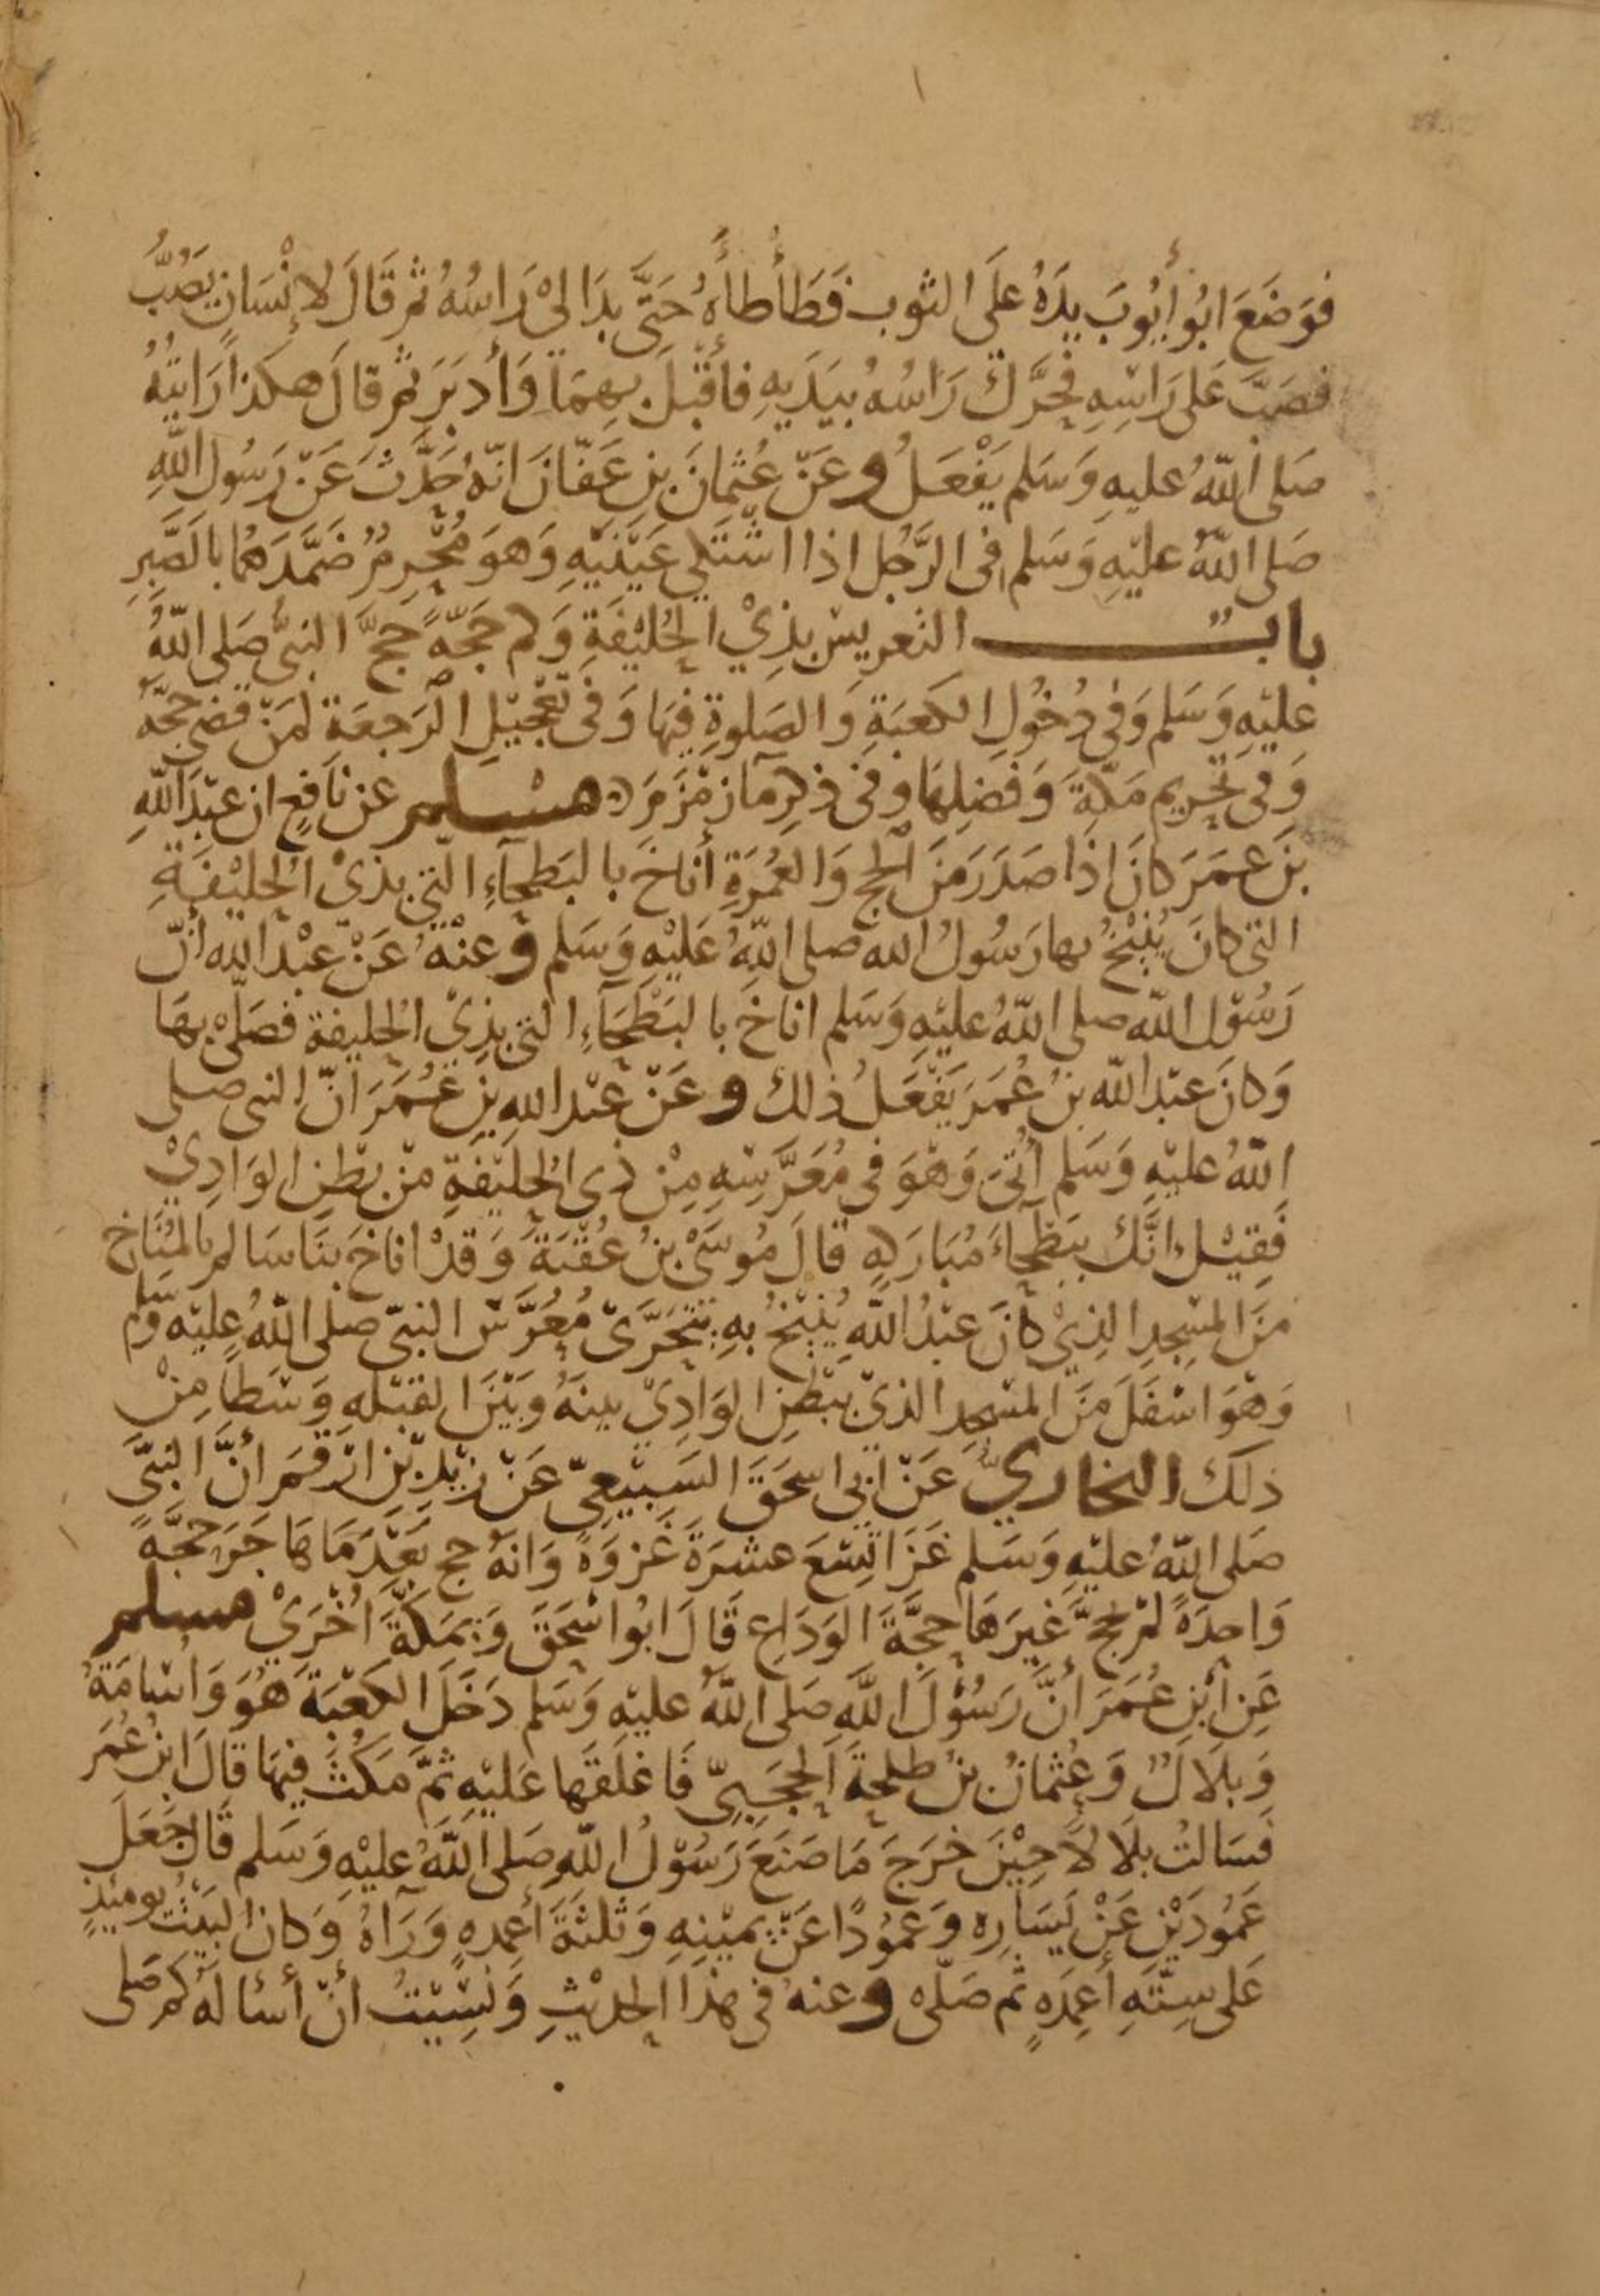 فَوَضَعَ ابُو أَيُّوبَ يدَهُ عَلَى الثوب فَطَأْطَأَهُ حَتَّى بدَا لِىْ رَاسُهُ ثم قَالَ لِإنْسَانٍ يَصُبُّ
فصَبَّ عَلى رَاسِهِ فَحَرَّكَ رَاسُهُ بيَدَيهِ فأقْبَلَ بِهِمَا وَأدبَرَ ثم قالَ هكَذا رَايتُهُ
صَلى اللّهُ عليهِ وَسَلم يَفْعَلُ وعَنْ عُثمانَ بنِ عَفّانَ انّهُ حَدَّثَ عَنْ رَسُول اللّهِ
صَلى اللّهُ عليْهِ وَسَلم فى الرَّجُل اذا اشْتَكَى عَيْنَيْهِ وَهوَ مُحْرِمٌ ضَمَّدَهُما بالصَّبِرِ
باب التعريس بذِيْ الحُلَيْفَةِ وَكم حَجّةً حَجَّ النبىُّ صَلى اللّهُ
عليْهِ وَسَلم وَفى دُخُولِ الكَعبَةِ وَالصَلوةِ فيهَا وَفى تَعْجِيْلِ الرَجعَةِ لمَنْ قضى حَجّهُ
وَفى تَحْريم مَكّةَ وَفضلِهَا وفى ذِكرِ مآ زمْزَمَ مسلم عَن نَافِعٍ ان عبْدَ اللّهِ
بنَ عمَرَ كانَ اذَا صَدَرَ مَنَ الحَج وَالعُمْرَةِ أناخَ بالبَطحَآءِ التِي بذىْ الحُليْفَةِ
التى كانَ يُنيْخُ بها رَسُولُ الله صلى اللّهُ عَليْهِ وَسَلم وعنْهُ عَنْ عبْد الله أنّ
رَسُوْل اللّه صلى اللّهُ عليْهِ وَسَلم اناخَ بالبَطْحَآءِ التى بذِىْ الحُليفة فصَلّىْ بهَا
وَكانَ عبْد اللّه بنُ عُمَرَ يَفْعَلُ ذلك وعَنْ عبْد اللهِ بنِ عُمَرَ انّ النبى صلى
اللّهُ عليْهِ وَسَلم أُتىَ وَهْوَ فى مُعَرَّسِهِ مِنْ ذِى الحُلَيْفَةِ منْ بطْنِ الوَادِيْ
فَقِيْلَ انَّكَ ببَطْحآءَ مُبَارَكةٍ قالَ مُوسَىْ بنُ عُقْبَةَ وَقدْ اناخَ بنَا سَالم بالمُنَاخِ
منَ المسْجِدِ الذِىْ كانَ عبْدُ اللّهِ يُنيْخُ بهِ يَتحَرَّىْ مُعَرَّسَ النبىّ صلى اللّهُ عليْه وَسَلم
وَهْوَ اسْفَلَ منَ المسْجِد الذىْ ببَطْنِ الوَادِىْ بينَهُ وَبَيْنَ القبْلَهِ وَسَطًا مِنْ
ذلكَ البخاريّ عَنْ ابى اسحَقَ السَبِيْعِىّ عَنْ زيْدِ بْنِ ارْقمَ أنَّ النبىَّ
صَلى اللّهُ عليْهِ وَسَلم غَزَا تِسْعَ عشرَةَ غَزوَةً وَانهُ حج بَعْدَ مَا هَاجَرَ حَجَّةً
وَاحدَةً لم يَحُجَّ غَيرَهَا حجَّةَ الوَدَاعِ قَالَ ابُو اسْحَقَ وَبمَكّةَ أُخْرَىْ مسلم
عَنِ ابْنِ عُمَرَ أنَّ رَسُوْلَ اللَّهِ صَلى اللّهُ عليْه وَسَلم دَخَلَ الكعْبَةَ هُوَ وَاسَامَةُ
وَبلَالٌ وَعُثمانُ بنُ طلحةَ الحَجَبِىّ فَاغلَقَهَا عَليْهِ ثمَّ مَكَثَ فيهَا قَالَ ابنُ عُمَرَ
فَسَالتُ بلَالًا حِيْنَ خرَجَ مَا صَنَعَ رَسُوْلُ اللّهِ صَلى اللّهُ عليْهِ وَسَلم قَالَ جَعَلَ
عَمُودَيْنِ عَنْ يَسَارِه وَعَمُوْدًا عَنْ يمِيْنِهِ وَثلثَةَ أعمِدهٍ وَرَآهُ وَكانَ البَيْتُ يومَئِذٍ
عَلى سِتّةِ أعمِدَهٍ ثم صَلّى وعنهُ فى هذا الحديْثِ وَنَسِيْتُ أنْ أسْالهُ كم صَلى